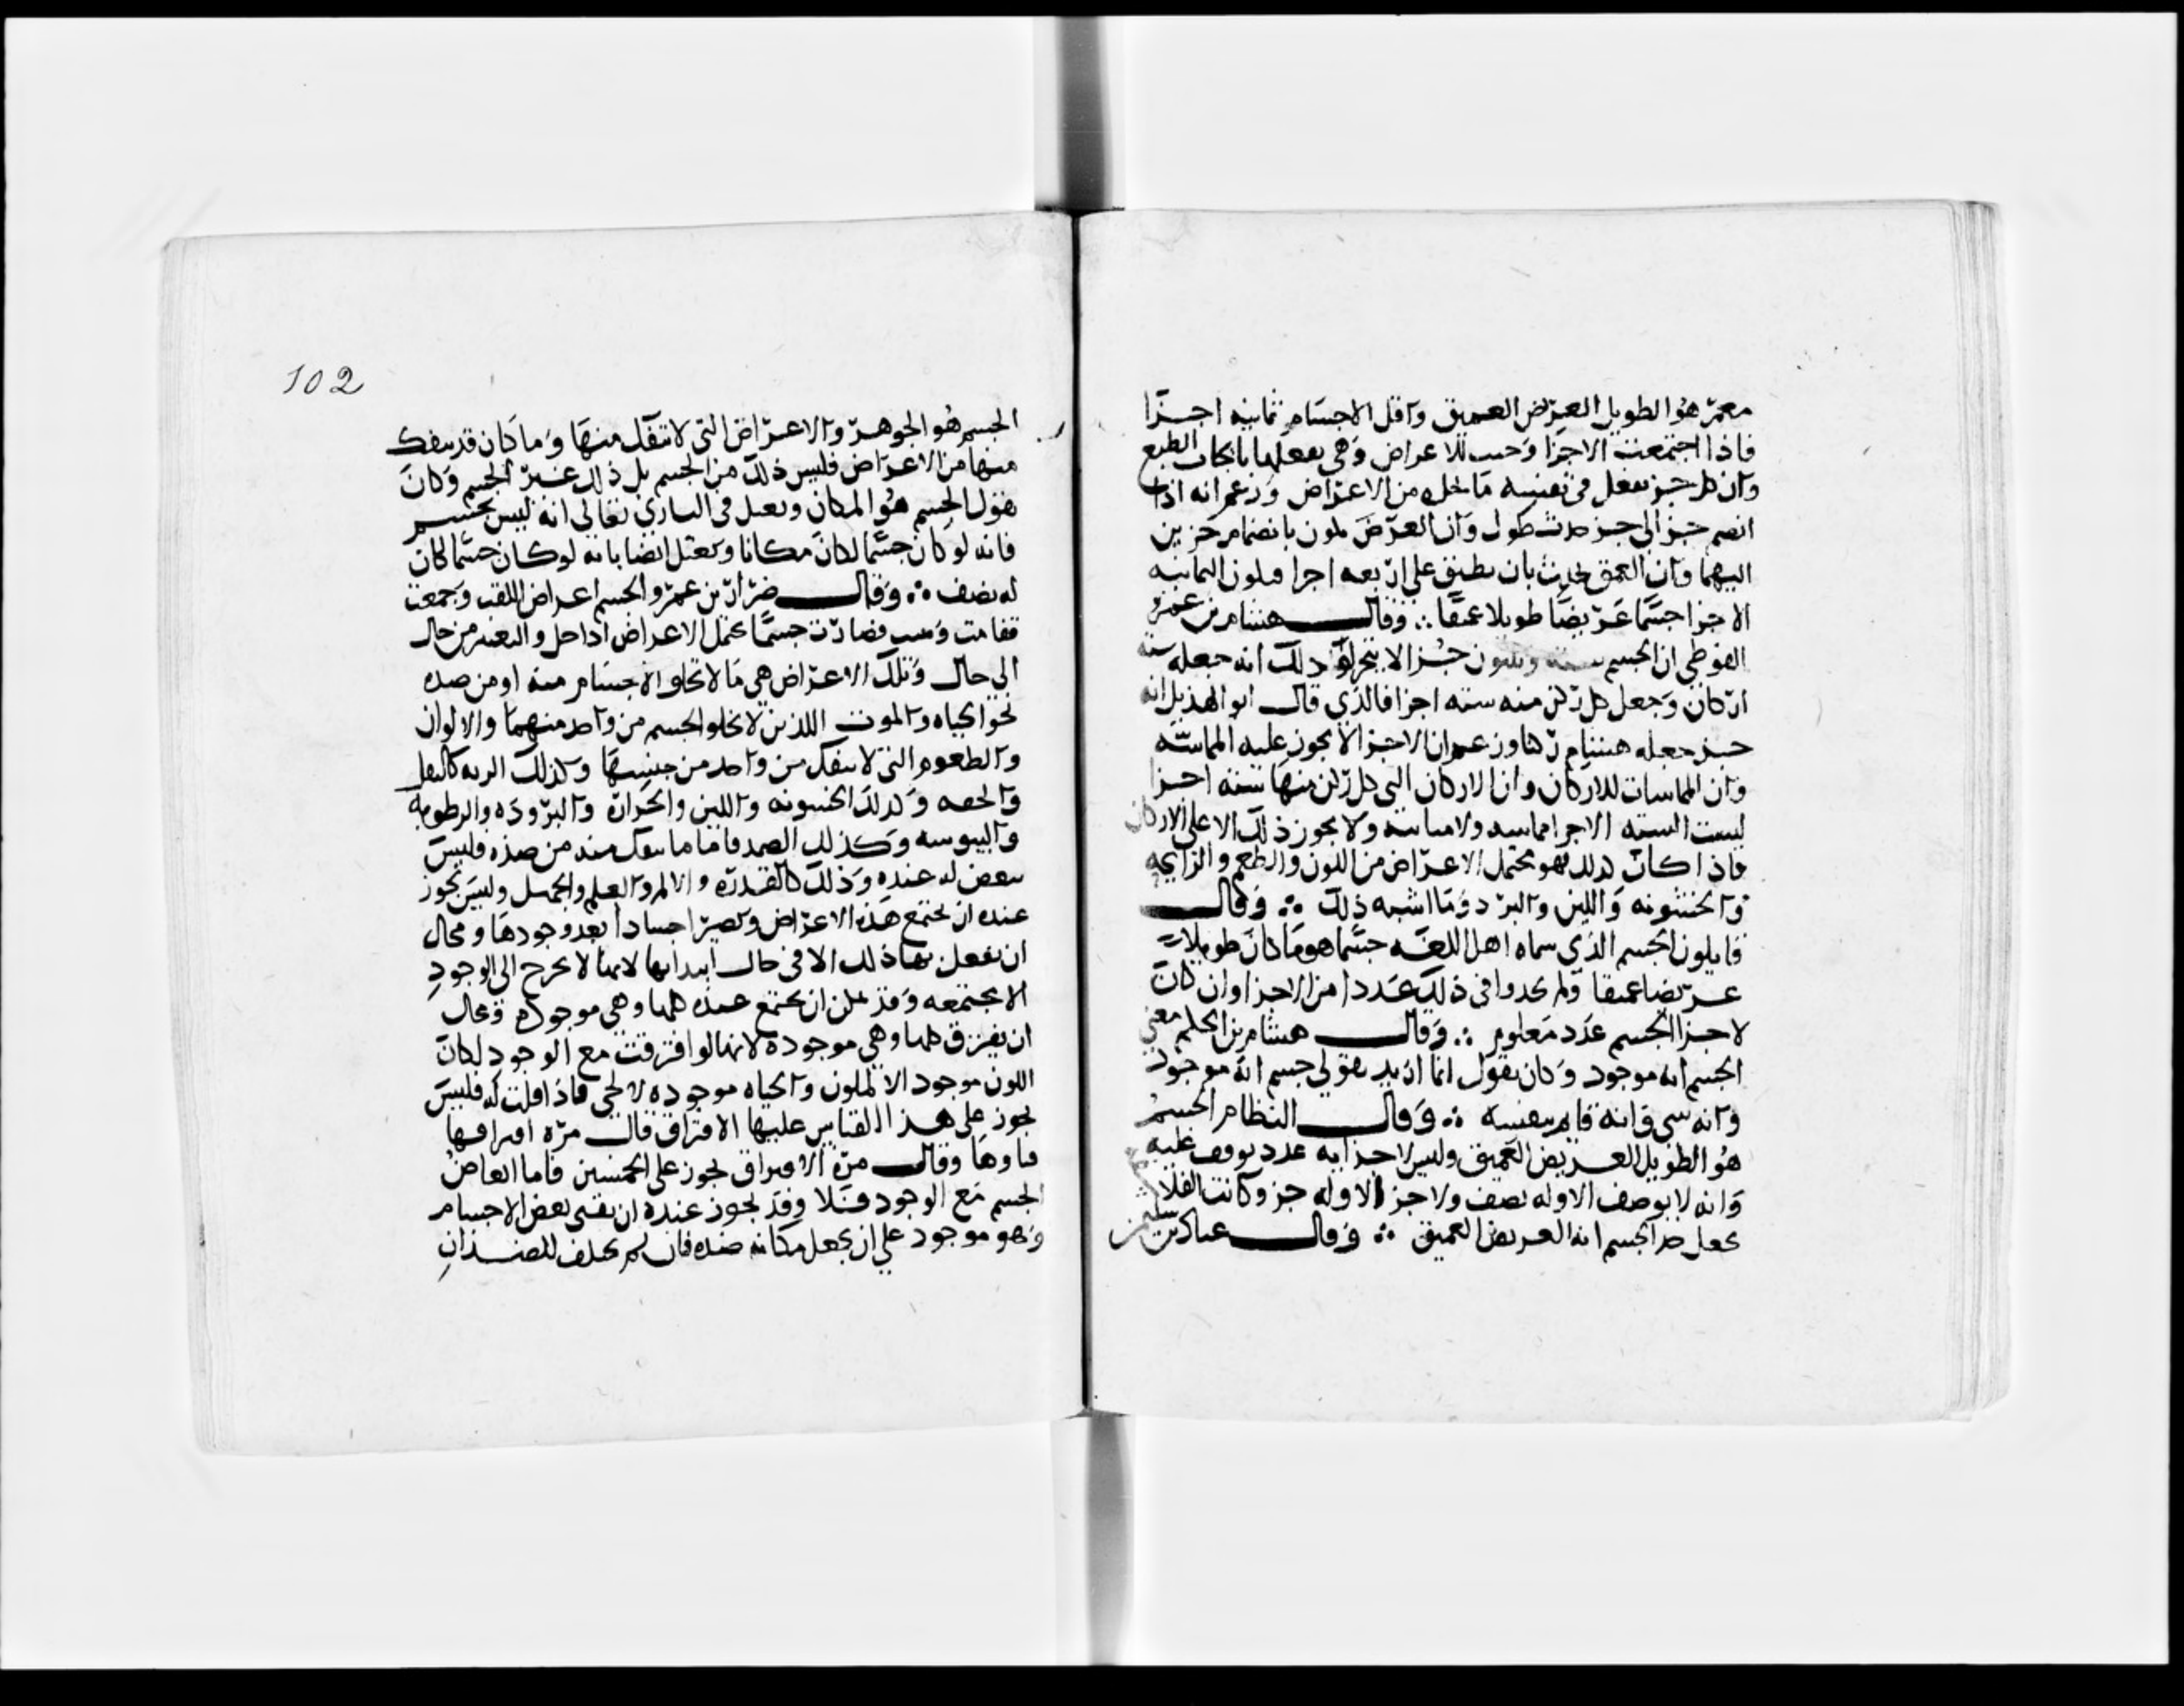 معمر هو الطويل العريض العميق واقل الاجسام ثمانيه اجزا
فاذا اجتمعت الاجزا وجبت الاعراض وهي يفعلها بايجاب الطبع
وان كل جز يفعل في نفسه ما يحله من الاعراض وزعم انه اذا
انضم جز الى جز حدث طول وان العرض يكون بانضمام جزين
اليهما وان العمق يحدث بان يطبق على اربعه اجزا فيكون الثمانيه
الاجزا جسما عريضا طويلا عميقا ∴ وقال هشام بن عمرو
الفوطي ان الجسم سته وثلثون جزا لا يتجزا وذلك انه جعله سته
اركان وجعل كل ركن منه سته اجزا فالذي قال ابو الهذيل انه
جز جعله هشام ركنا وزعم ان الاجزا لا يجوز عليه المماسه
وان المماسات للاركان وان الاركان التي كل ركن منها سته اجزا
ليست السته الاجزا مماسه ولا مباينه ولا يجوز ذلك الا على الاركان
فاذا كان كذلك فهو يحتمل الاعراض من اللون والطعم والرايحه
والخشونه واللين والبرد وما اشبه ذلك ∴ وقال
قايلون الجسم الذي سماه اهل اللغه جسما هو ما كان طويلا
عريضا عميقا ولم يحدوا في ذلك عددا من الاجزا وان كان
لاجزا الجسم عدد معلوم ∴ وقال هشام بن الحكم معنى
الجسم انه موجود وكان يقول انما اريد بقولي جسم انه موجود
وانه شي وانه قايم بنفسه ∴ وقال النظام الجسم
هو الطويل العريض العميق وليس لاجزايه عدد يوقف عليه
وانه لا نصف الا وله نصف ولا جز الا وله جز وكانت الفلاسفه
تجعل حد الجسم انه العريض العميق ∴ وقال عباد بن سليمن
102
الجسم هو الجوهر والاعراض التي لا ينفك منها وما كان قد ينفك
منها من الاعراض فليس ذلك من الجسم بل ذلك غير الجسم وكان
يقول الجسم هو المكان ويعتل في الباري تعالى انه ليس بجسم
فانه لو كان جسما لكان مكانا ويعتل ايضا بانه لو كان جسما لكان
له نصف ∴ وقال ضرار بن عمرو الجسم اعراض الفت وجمعت
فقامت وثبتت فصارت جسما يحتمل الاعراض اذا حل والتغير من حال
الى حال وتلك الاعراض هي ما لا تخلوا الاجسام منه او من ضده
نحو الحياه والموت اللذين لا يخلوا الجسم من واحد منهما والالوان
والطعوم التي لا ينفك من واحد من جنسها وكذلك الزنه كالثقل
والخفه وكذلك الخشونه واللين والحراره والبروده والرطوبه
واليبوسه وكذلك الصمد فاما ما ينفك منه من ضده فليس
ببعض له عنده وذلك كالقدره والالم والعلم والجهل وليس يجوز
عنده ان تجتمع هذه الاعراض وتصير اجسادا بعد وجودها ومحال
ان يفعل بها ذلك الا في حال ابتدايها لانها لا تخرج الى الوجود
الا مجتمعه وقد يمكن ان تجتمع عنده كلها وهي موجوده ومحال
ان يفترق كلها وهي موجوده لانها لو افترقت مع الوجود لكان
اللون موجود الا لملون والحياه موجوده لا لحي فاذا قلت له فليس
يجوز على هذا القياس عليها الافتراق قال مره افتراقها
فناوها وقال مره الافتراق يجوز على الجسمين فاما ابعاض
الجسم مع الوجود فلا وقد يجوز عنده ان يفنى بعض الاجسام
وهو موجود على ان يجعل مكانه ضده فان لم يختلف الضدان